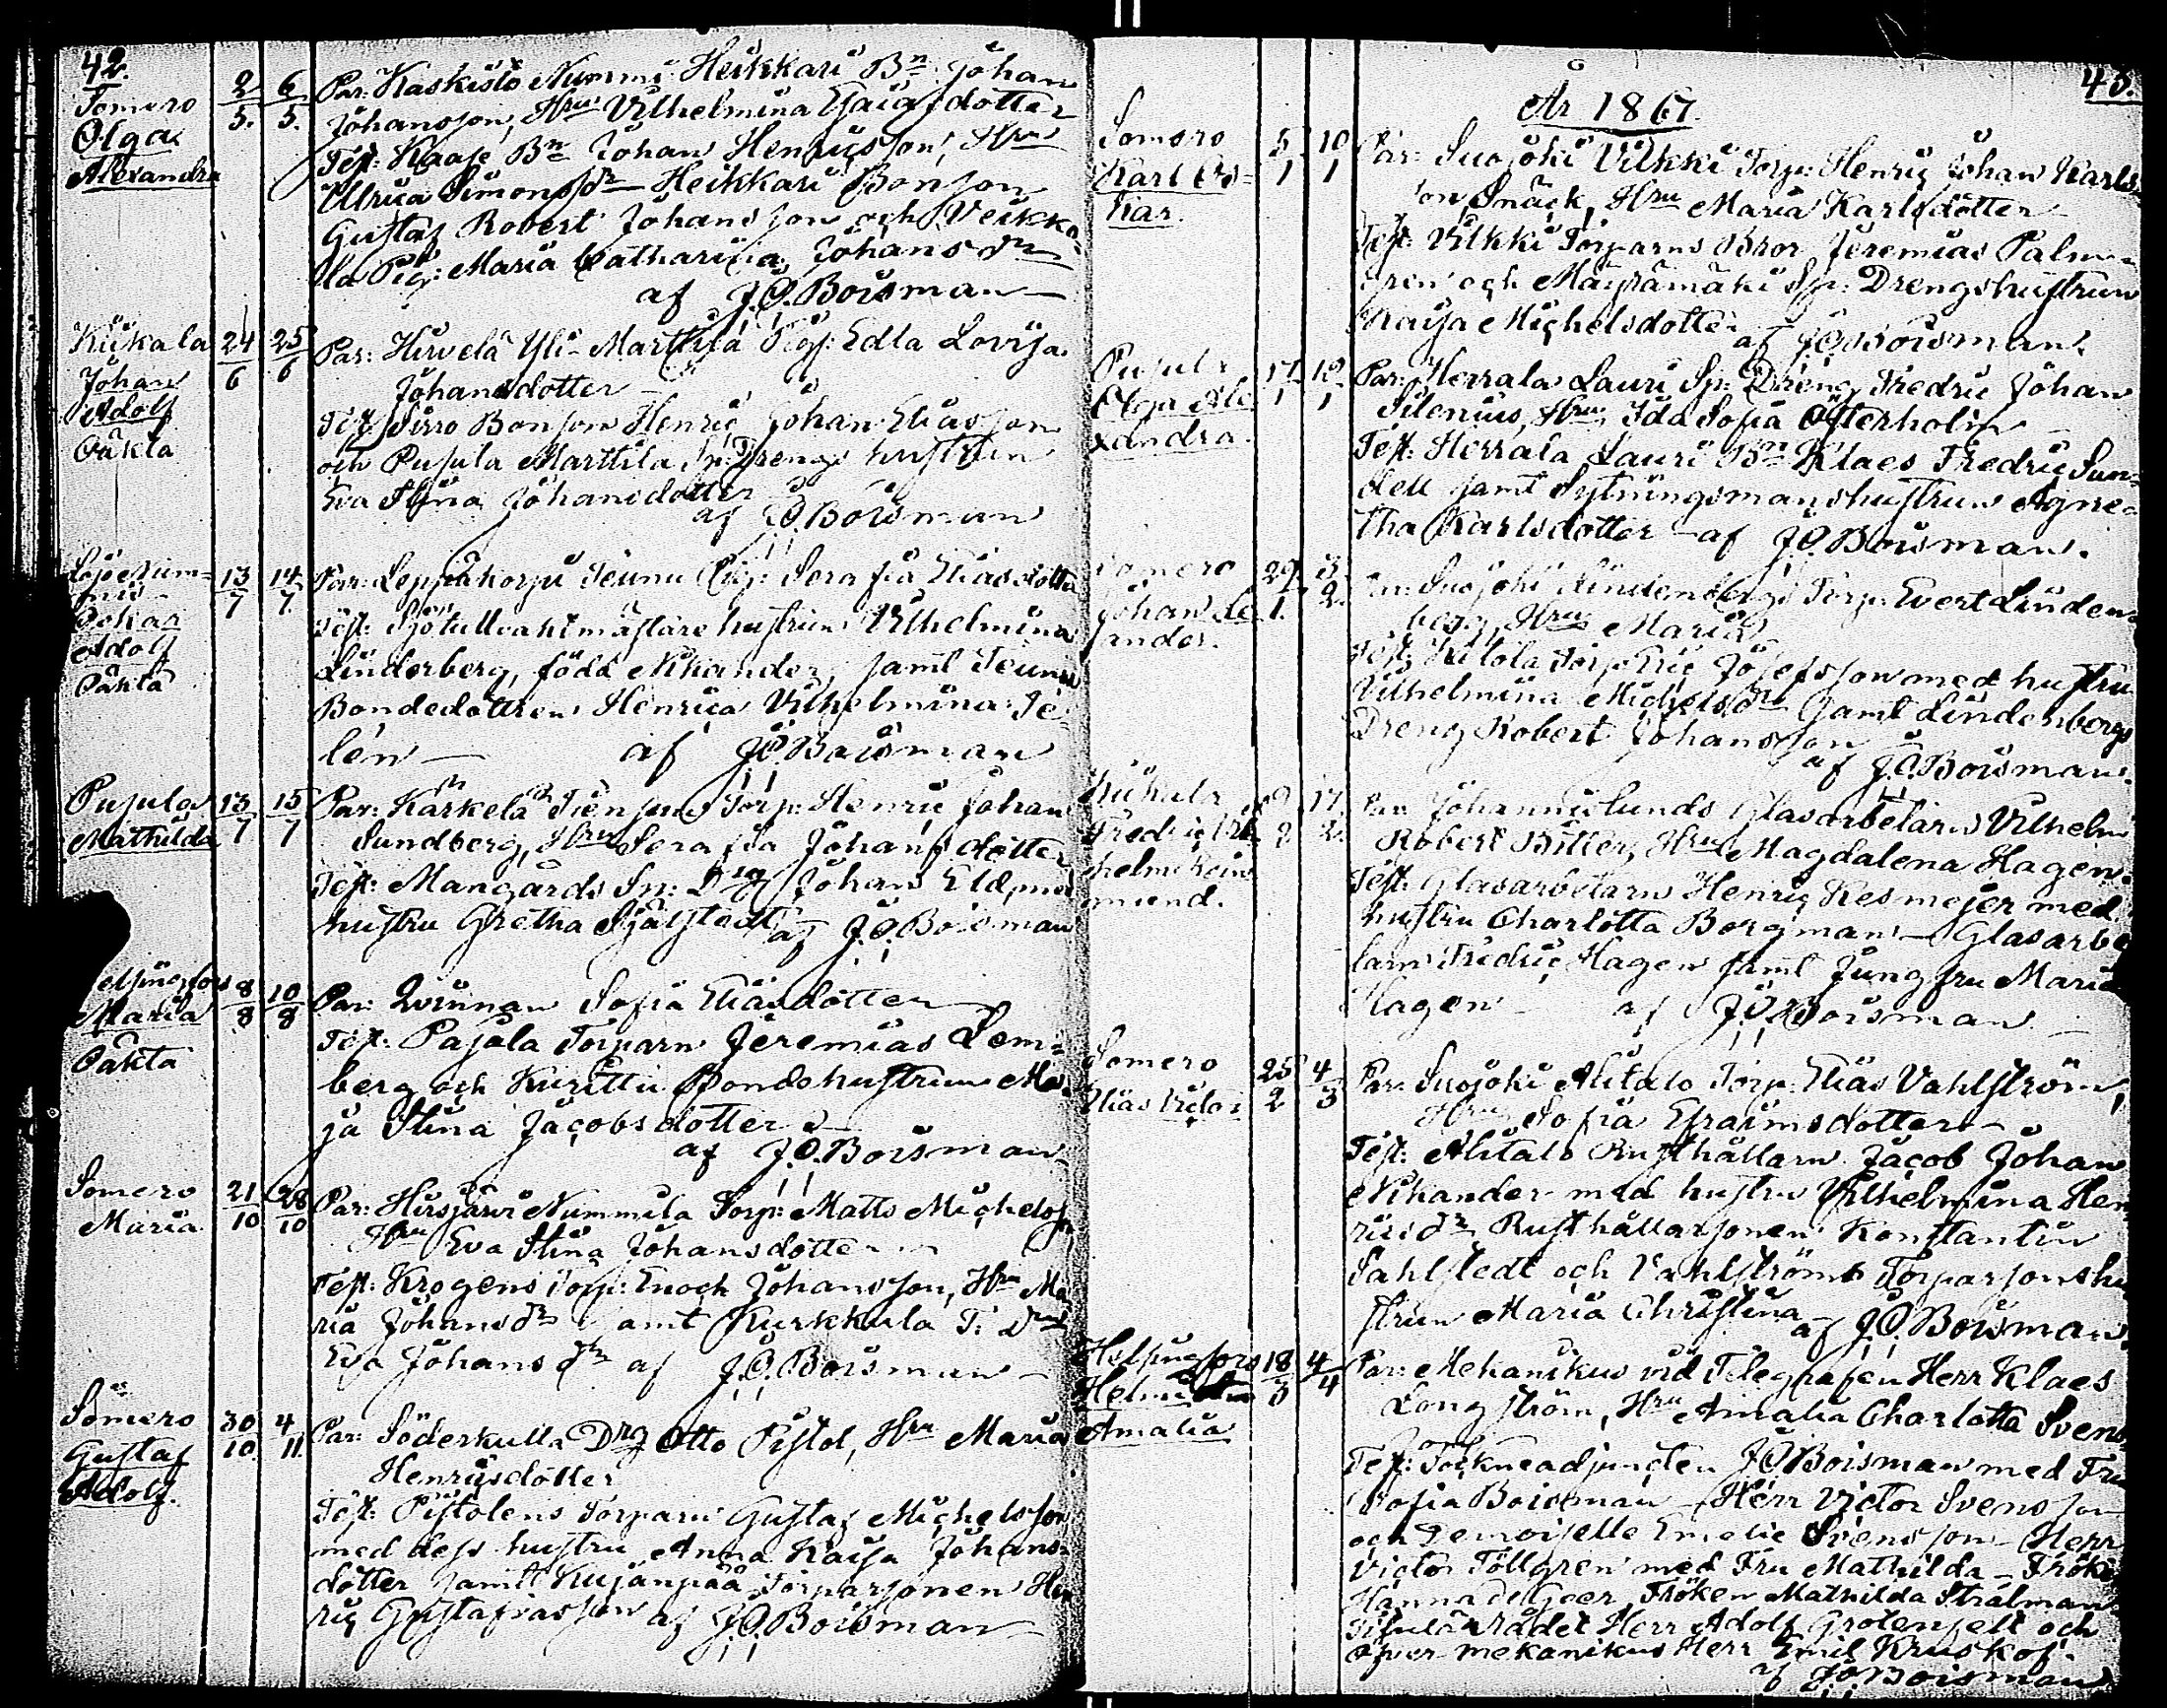 42.
Somero
Olga
Alexandra
2/5. 6/5.
Par: Kaskisto Nummi Heikkari Bn Johan
Johansson, Hru Vilhelmina Esaiasdotter
Test: Kaase Bn Johan Henricsson, Hru
Ulrica Simonsdr Heikkari Bonson
Gustaf Robert Johansson och Veikko-
la Pig: Maria Catharina Johansdr
af J.O. Boisman
Kiikala
Johan
Adolf
Oäkta
24/6 25/6
Par: Hirvelä Yli-Marttila Pig: Edla Lovisa
Johansdotter
Test: Sirro Bonson Henric Johan Eliasson
och Pusula Marttila Sp: Drengs hustrun
Eva Stina Johansdotter
af J.O. Boisman
Lojo Num-
mis
Oskar
Adolf
Oäkta
13/7 14/7.
Par: Leppäkorpi Teunu Pig: Serafia Eliasdotter
Test: Sjötullvaktmästare hustrun Vilhelmina
Linderberg, född Nikander, samt Teunu
Bondedottren Henrica Vilhelmina Te-
lén af J.O. Boisman
Pusula
Mathilda
13/7 15/7
Par: Kärkelä Torp: Henric Johan
Sundberg, Hru Serafia Johansdotter
Test: Mangårds Sp: Drg Johan Eld, med
hustru Gretha Själstedt af J.O. Boisman
elsingfors
Maria
Oäkta
8/8 10/8
Par: Qvinnan Sofia Eliasdotter
Test: Pajula Torparn Jeremias Lem-
berg och Kurittu Bondshustrun Ma-
ja Stina Jacobsdotter
af J.O. Boisman
Somero
Maria
21/10 28/10
Par: Hirsjärvi Nummila Torp: Matts Michelss
Hru Eva Stina Johansdotter
Test: Krogens Torp: Enoch Johansson, Hru Ma-
ria Johansdr samt Kurkkula
Eva Johansdr af J.O. Boisman
Somero
Gustaf
Adolf.
30/10. 4/11.
Par: Söderkulla Drg Otto Pistol, Hru Maria
Henricsdotter
Test: Pistolens Torparn Gustaf Michelsson
med dess hustru Anna Kaisa Johans-
dotter samt Kujanpää Torparsonen Hen-
ric Gustafsson af J.O. Boisman
43.
År 1867.
Somero
Karl Os-
kar.
5/1 10/1
Par: Suojoki Vilkki Torp: Henric Johan Karls-
son Snäck, Hru Maria Karlsdotter
Test: Vilkki Torparns Bror Jeremias Palm-
gren och Mäyrämäki Sp: Drengshustrun
Kaisa Michelsdotter af J.O. Boisman.
Pusula
Olga Ale-
xandra.
17/1 18/1
Par: Herrala Lauri Sp: Dreng Fredric Johan
Silenius, Hru Ida Sofia Österholm
Test: Herrala Lauri Bn Klaes Fredric Sun-
dell samt Sytningsmanshustrun Agne-
tha Karlsdotter af J.O. Boisman.
Somero
Johan Le-
ander.
29/1. 3/2.
Par: Suojoki Lindenbergs Torp: Evert Linden-
berg, Hru Maria
Test: Kilola Torp: Eric Josefsson med hustru
Vilhelmina Michelsdr samt Lindenbergs
Dreng Robert Johansson
af J.O. Boisman.
Kiikala
Fredric Vil-
helm Rein-
mund.
9/2 17/2.
Par: Johannislunds Glasarbetarn Vilhelm
Robert Bitter, Hru Magdalena Hagen.
Test: Glasarbetarn Henric Kesmejer med
hustru Charlotta Bergman - Glasarbe-
tarn Fredric Hagen samt Jungfru Maria
Hagen af J.O. Boisman
Somero
Elias Victor
25/2 4/3
Par: Suojoki Alitalo Torp: Elias Vahlström,
Hru Sofia Efraimsdotter
Test: Alitalo Rusthållarn Jacob Johan
Nikander med hustru Vilhelmina Hen-
ricsdr Rusthållarsonen Konstantin
Sahlstedt och Vahlströms Torparsonshu-
strun Maria Christina af J.O. Boisman.
Helsingfors
Helmi
Amalia
18/3 4/4
Par: Mekanikus vid Telegrafen Herr Klaes
Långström, Hru Amalia Charlotta Svens
Test: Sockneadjuncten J.O. Boisman med Fru
Sofia Boisman - Herr Victor Svensson
och Demoiselle Emelie Svensson - Herr
Victor Töllgren med Fru Mathilda - Fröken
Hanna de Geer, Fröken Mathilda Stråhlman
Titulärrådet Herr Adolf Grotenfelt och
öfver mekanikus Herr Emil Kruskof.
af J.O. Boisman